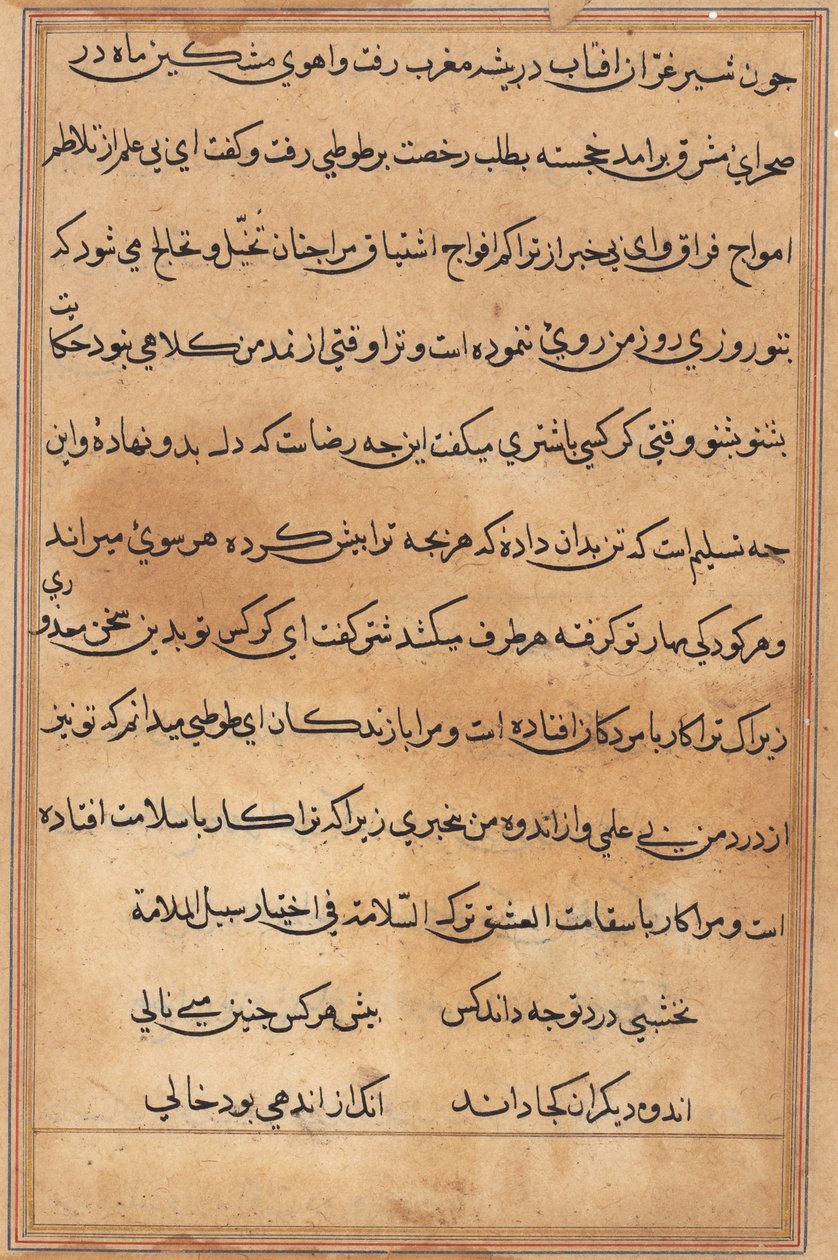 جون شیر غرّان افتاب در بیشه مغرب رفت و اهوي مشکین ماه در
صحراي مشرق برامد خجسته بطلب رخصت بر طوطي رفت و کفت اي بي علم از تلاطم
امواج فراق و اي بي خبر از تراکم افواج اشتیاق مرا جنان تُخیّل و تخالج مي شود که
بتو روزي روز من روئ ننموده است و ترا وقتي از نمد من کلاهي نبود حکایت
بشنو بشنو وقتي کرکسي با شتري میکفت این جه رضاست که دل بدو نهادهٔ و این
جه تسلیم است که تن بدان دادهٔ که هر بجه ترا بیش کرده هر سوئ میراند
و هر کودکي مهار تو کرفته هر طرف میکشد شتر کفت اي کرکس تو بدین سخن معذوري
زیراک ترا کار با مردکان افتاده است و مرا با زندکان اي طوطي میدانم که تو نیز
از درد من بے علمي و از اندوه من بیخبري زیرا که ترا کار با سلامت افتاده
است و مرا کار با سقامت العشق ترک السّلامة في اختیار سبیل الملامة
نخشبي درد تو جه داند کس بیش هر کس جنین مے نالي
اندوه دیکران کجا داند انک از اندهي بود خالي